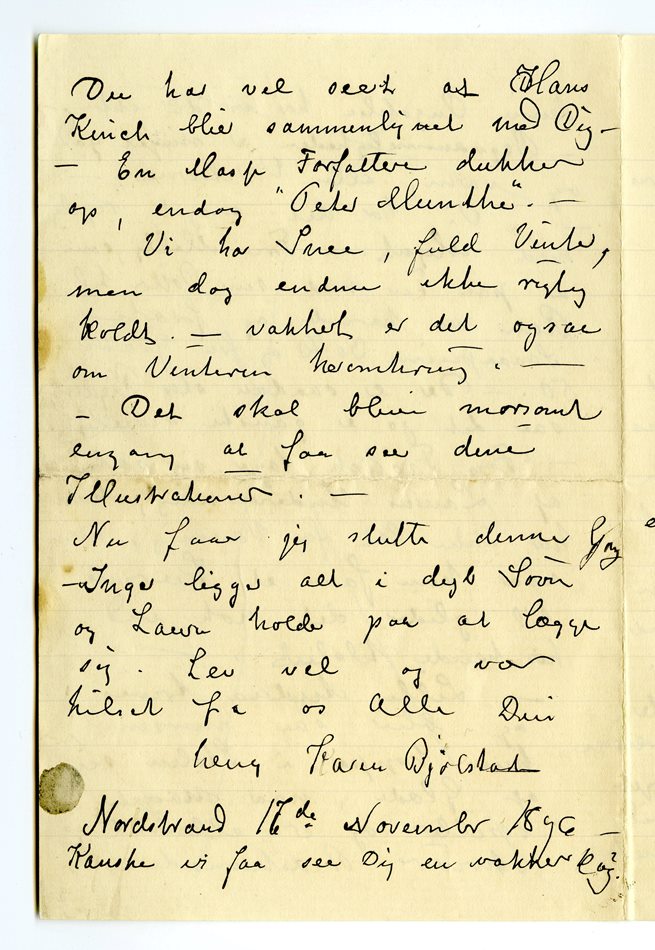 Du har vel seet at Hans
Kinck blir sammenlignet med Dig –
– En Masse Forfattere dukker
op, endog "Peter Munthe". –
Vi har Snee, fuld Vinter,
men dog endnu ikke rigtig
koldt. – vakkert er det ogsaa
om Vinteren heromkring. –
– Det skal bliver morsomt
engang at faa see dine
Illustrationer. –
Nu faar jeg slutte denne Gang
– Inger ligger alt i dyb Søvn
og Laura holder paa at lægge
sig. Lev vel og vær
hilset fra os Alle Din
heng Karen Bjølstad
Nordstrand 17de November 1896 –
Kanske vi faa see Dig en vakker Dag?